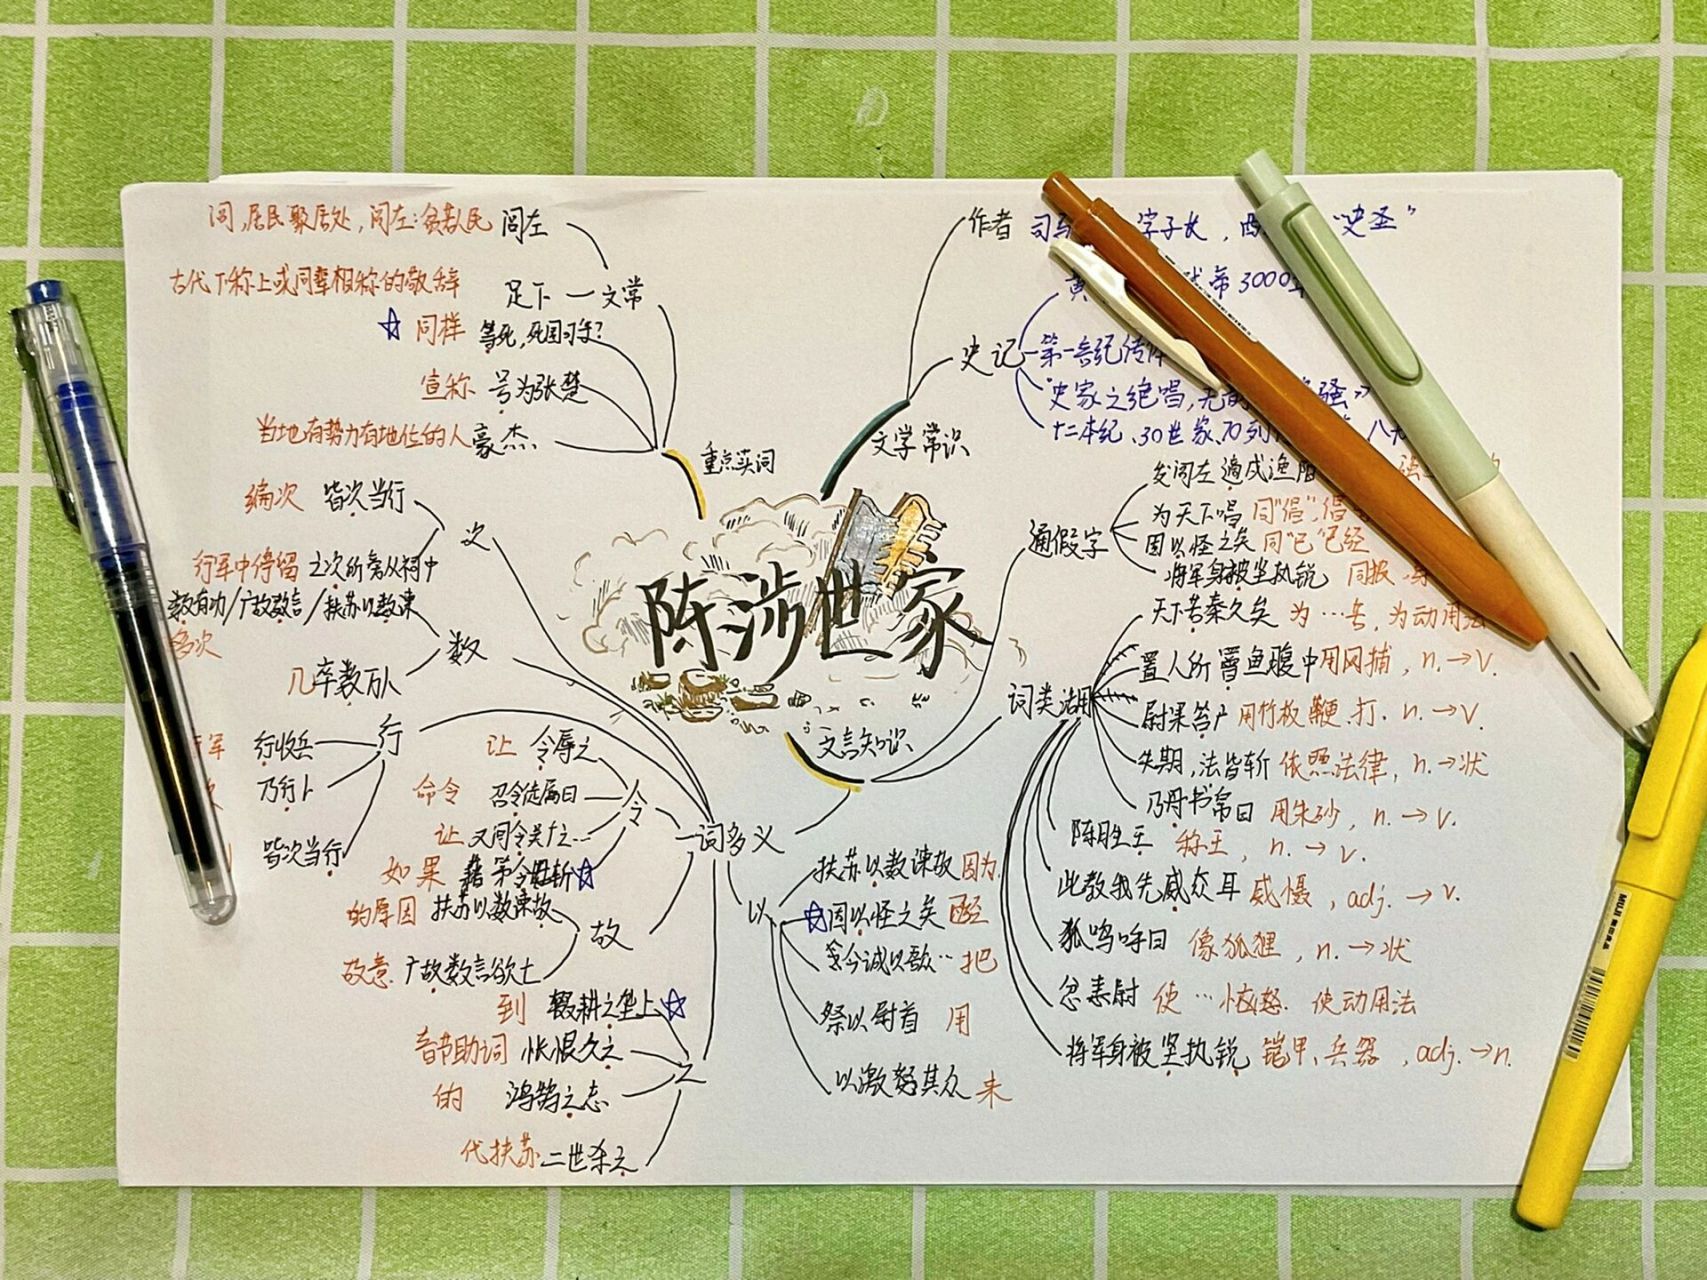 陈涉世家
重点实词
闾,居民聚居处,闾左:贫苦民 闾左
古代下称上或同辈相称的敬辞 足下 文常
同样 等死,死国可乎?
宣称 号为张楚
当地有势力有地位的人 豪杰
文学常识
作者 司马 字子长, 西 "史圣"
史记
黄 武帝 3000
第一部纪传体
"史家之绝唱,无 骚"
十二本纪、30世家、70列 八
文言知识
通假字
发闾左適戍渔阳
为天下唱 同"倡",倡
固以怪之矣 同"已"已经
将军身被坚执锐 同披
词类活用
天下苦秦久矣 为…苦,为动用法
置人所罾鱼腹中 用网捕,n.→v.
尉果笞广 用竹板鞭打.n.→v.
失期,法皆斩 依照法律,n.→状
乃丹书帛曰 用朱砂,n.→v.
陈胜王 称王,n.→v.
此教我先威众耳 威慑,adj.→v.
狐鸣呼曰 像狐狸,n.→状
忿恚尉 使…恼怒.使动用法
将军身被坚执锐 铠甲、兵器,adj.→n.
一词多义
次
编次 皆次当行
行军中停留 之次所旁丛祠中
数
数有功/广故数言/扶苏以数谏
多次
几 卒数万人
行
行收兵
乃行卜
皆次当行
令
让 令辱之
命令 召令徒属曰
让 又间令吴广之…
如果 藉第令毋斩
故
的原因 扶苏以数谏故
故意 广故数言欲亡
之
到 辍耕之垄上
音节助词 怅恨久之
的 鸿鹄之志
代扶苏 二世杀之
以
扶苏以数谏故 因为
固以怪之矣 已经
今诚以吾… 把
祭以尉首 用
以激怒其众 来
MUJI 無印良品